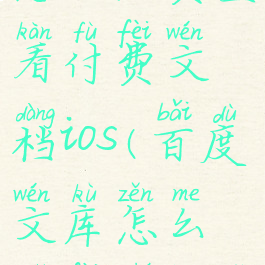 kàn fù fèi wén
看付费文
dàng bǎi dù
档ios(百度
wén kù zěn me
文库怎么